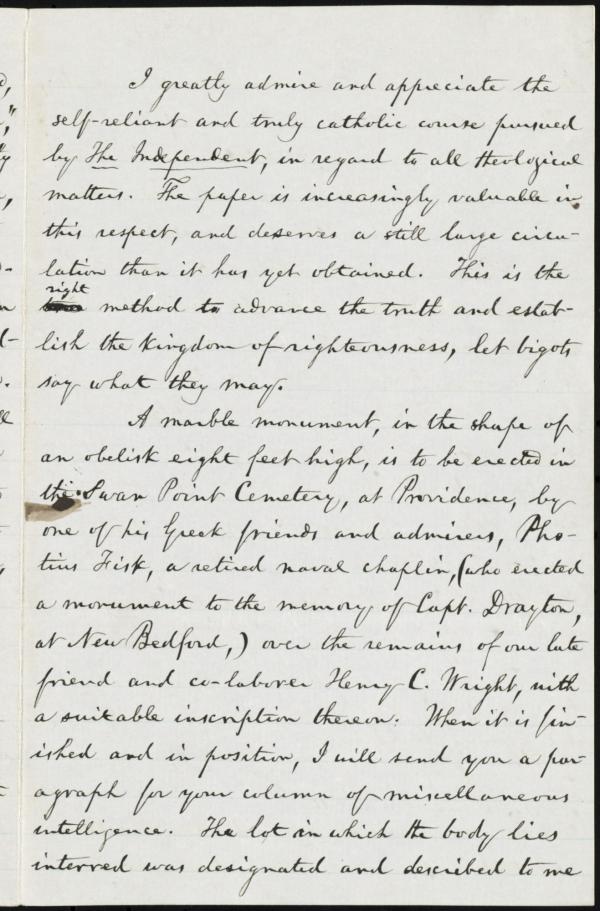 I greatly admire and appreciate the
self-reliant and truly catholic course pursued
by The Independent, in regard to all theological
matters. The paper is increasingly valuable in
this respect, and deserves a still large circu-
lation than it has yet obtained. This is the
right
method to advance the truth and estab-
lish the kingdom of righteousness, let bigots
say what they may.
A marble monument, in the shape of
an obelisk eight feet high, is to be erected in
the Swan Point Cemetery, at Providence, by
one of his Greek friends and admirers, Pho-
tius Fisk, a retired naval chaplin, (who erected
a monument to the memory of Capt. Drayton,
at New Bedford,) over the remains of our late
friend and co-laborer Henry C. Wright, with
a suitable inscription thereon. When it is fin-
ished and in position, I will send you a par-
agraph for your column of miscellaneous
intelligence. The lot in which the body lies
interred was designated and described to me